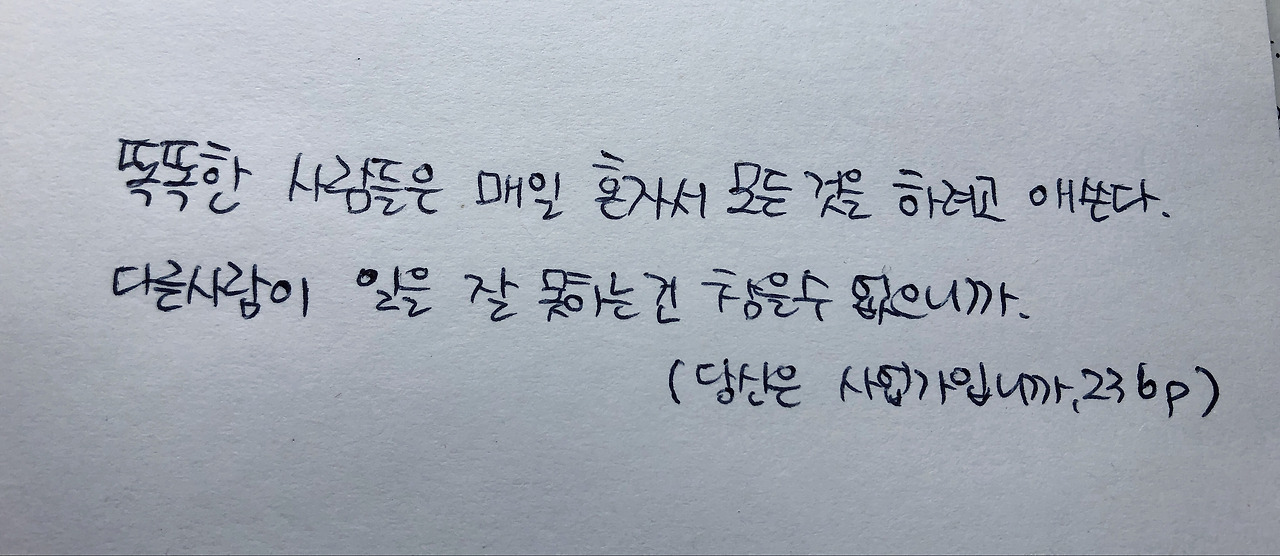 똑똑한 사람들은 매일 혼자서 모든 것을 하려고 애쓴다.
다른사람이 일을 잘 못하는건 참을수 없으니까.
(당신은 사업가입니까, 236p)